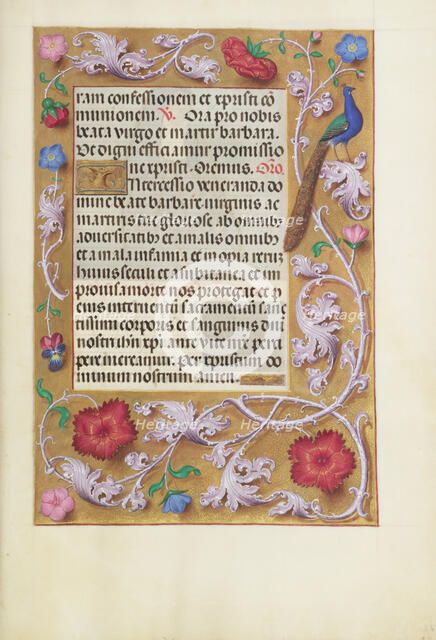 ram confessionem et xpristi cō
munionem. V. Ora pro nobis
beata virgo et martir barbara.
Ut digni efficiamur promissio
ne xpristi. Oremus. Oro.
Intercessio veneranda do
mine beate barbare virginis ac
martiris tue gloriose ab omnibus
adversitatibus et a malis omnibus
et a mala infamia et inopia rerum
huius seculi et a subitanea et im
provisa morte nos protegat et p
eius interventum sacramentum sanc
tissimi corporis et sanguinis dni
nostri ihu xpi ante vite nre
pere mereamur. Per xpristum do
minum nostrum. Amen.
Heritage
Heritage
Heritage
Heritage
Heritage
Heritage